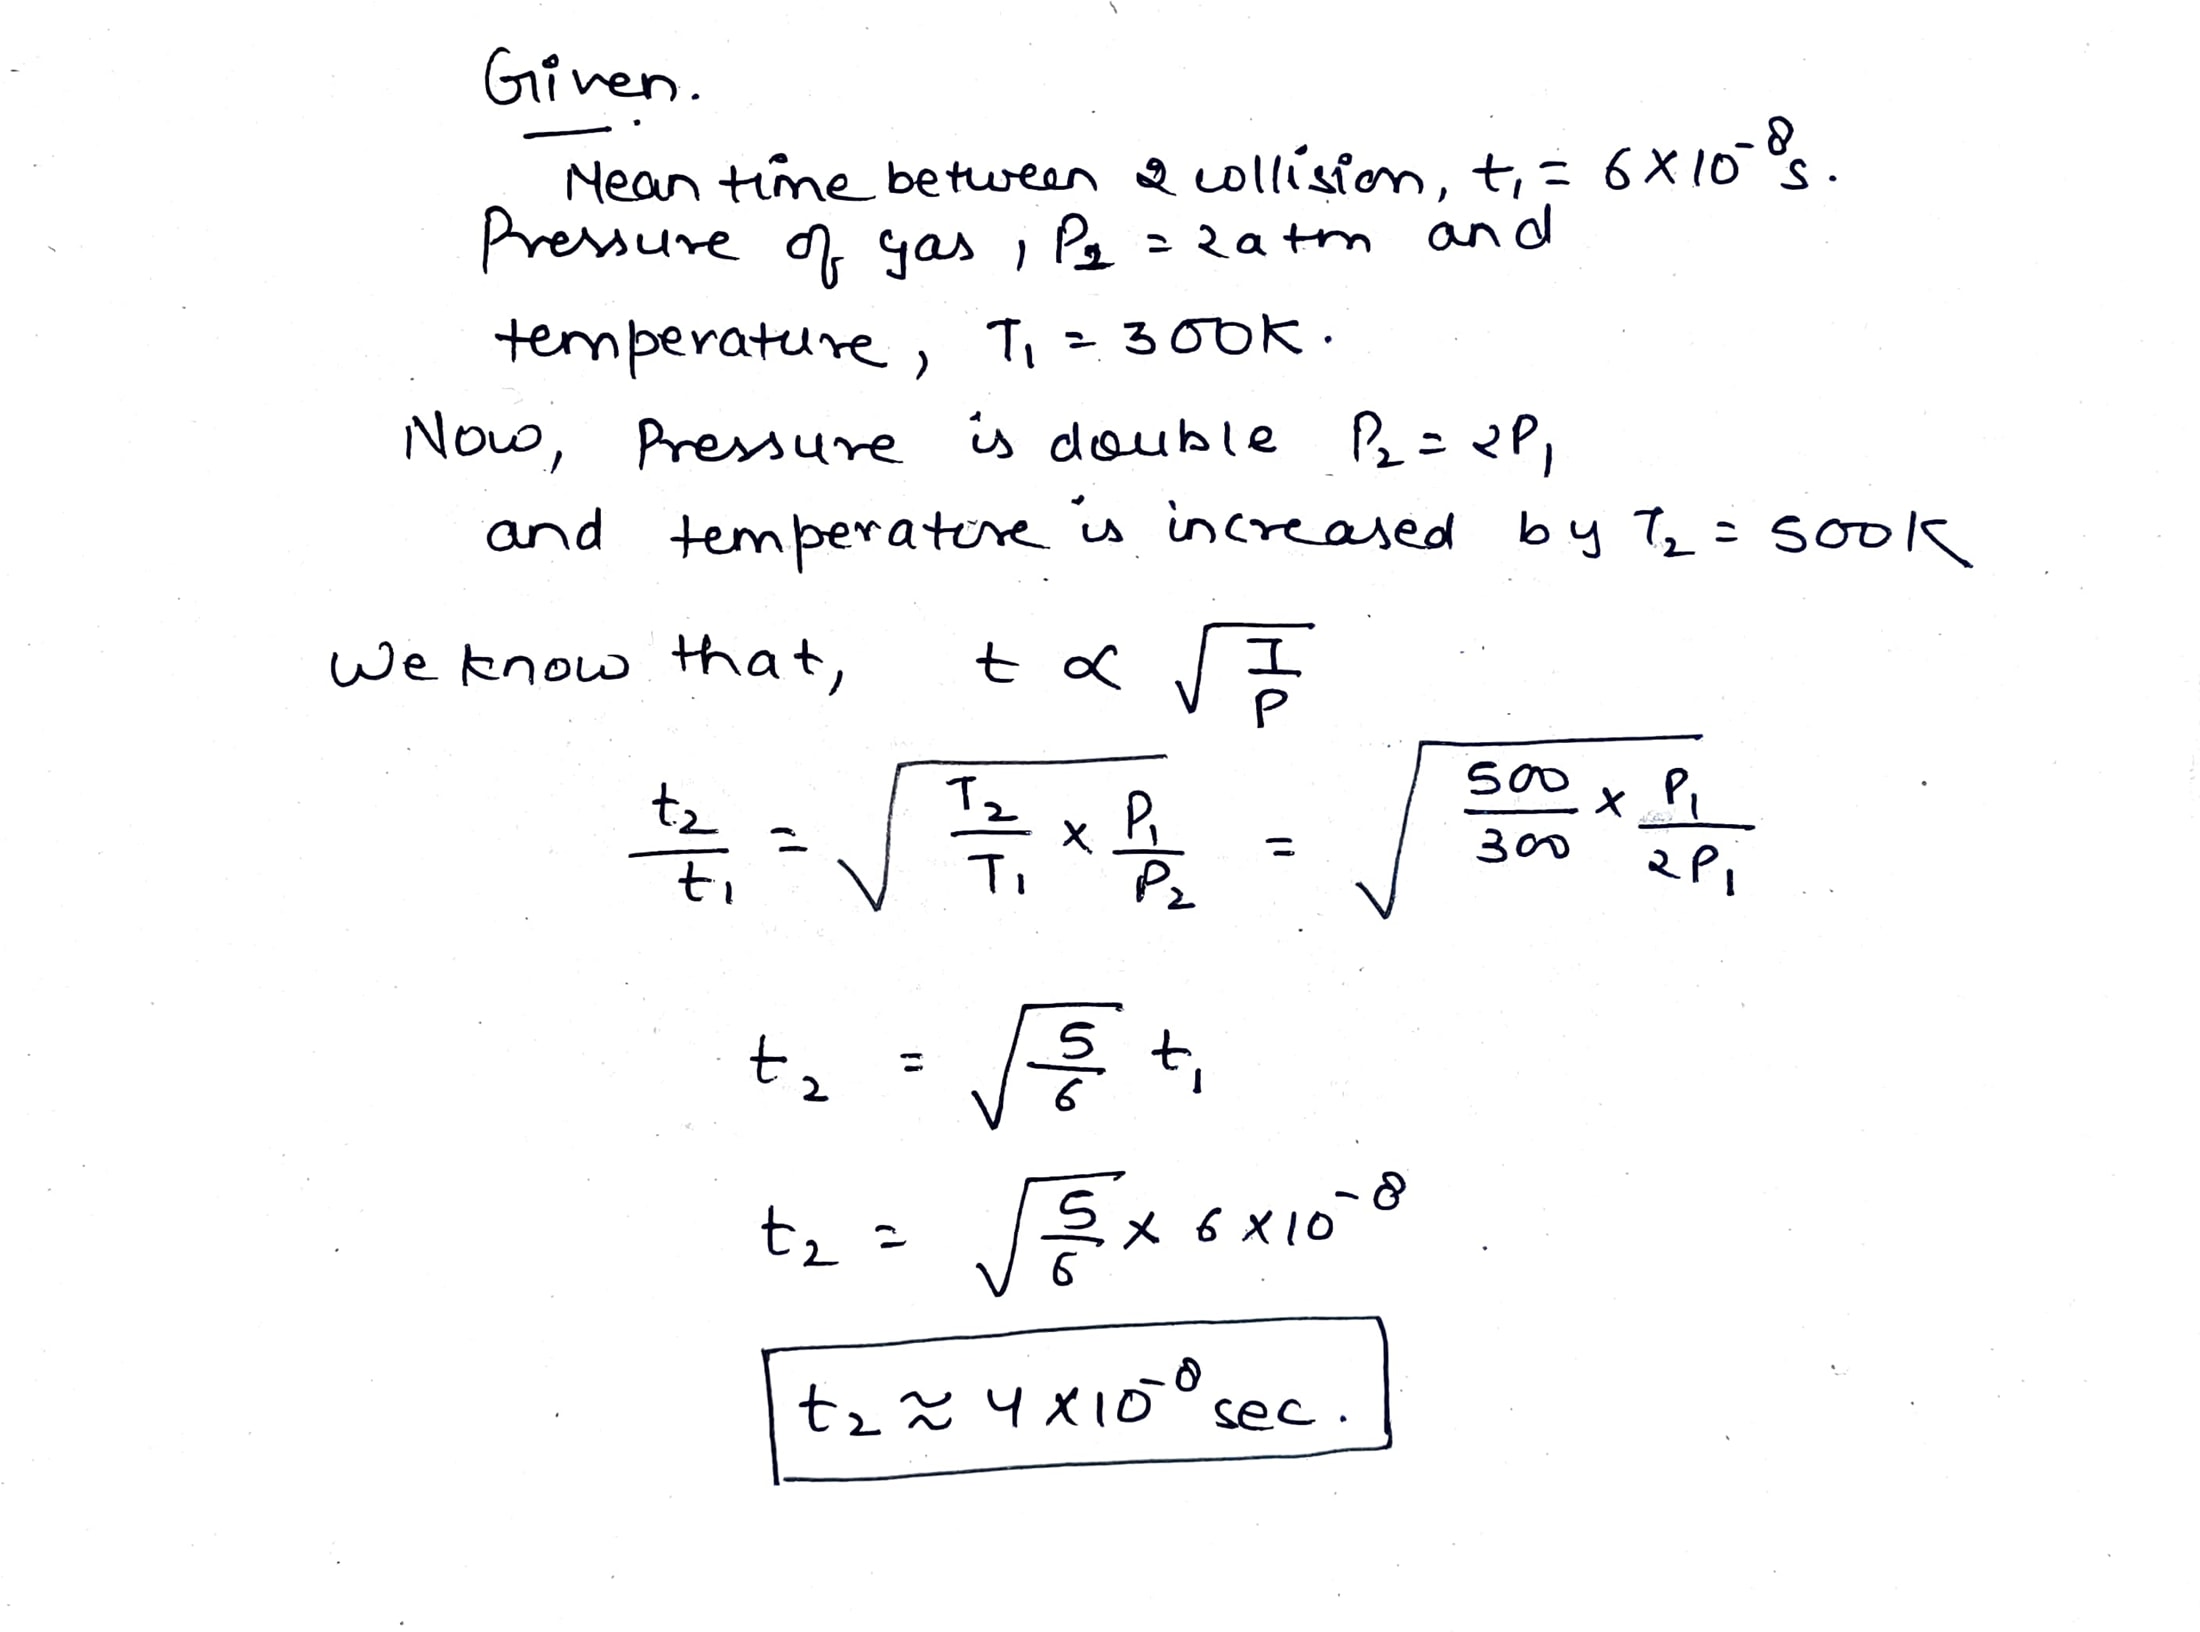 Given.
Mean time between 2 collision, t₁ = 6 × 10⁻⁸ s.
Pressure of gas, P₂ = 2 atm and
temperature, T₁ = 300K.
Now, Pressure is double P₂ = 2P₁
and temperature is increased by T₂ = 500K
We know that, t ∝ √(T/P)
t₂/t₁ = √(T₂/T₁ × P₁/P₂) = √(500/300 × P₁/2P₁)
t₂ = √(5/6) t₁
t₂ = √(5/6) × 6 × 10⁻⁸
t₂ ≈ 4 × 10⁻⁸ sec.